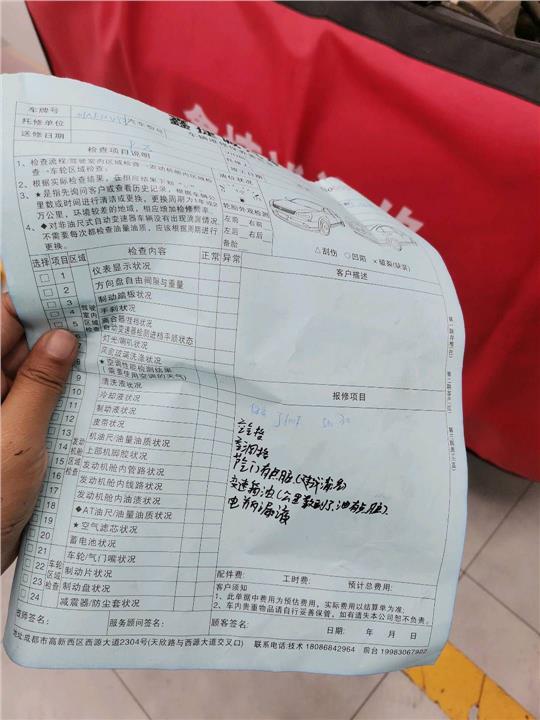 车牌号
托修单位
送修日期
检查项目说明
1、检查流程:驾驶室内区域检查→发动机舱内区域检查→车轮区域检查;
2、根据实际检查结果,在相应结果下
3、★是指先询问客户或查看历史记录,根据车辆公里数或时间进行清洁或更换,更换周期为1年或2万公里,环境较差的地域,相应增加检修频率。
4、◆对非油尺式自动变速器车辆没有出现渗漏情况,不需要每次都检查油量油质,应该根据周期进行更换。
轮胎外观检测
左前 右前
左后 右后
备胎
△刮伤 ○凹陷 ×破裂(缺装)
选择 项目 区域 检查内容 正常 异常 客户描述
1 仪表显示状况
2 方向盘自由间隙与重量
3 制动踏板状况
4 手刹状况
5 离合器/挂档状况
自动变速器检测进档平顺状态
灯光/喇叭状况
风窗玻璃洗涤状况
★空调性能检测结果
(需要使用空调的天气)
10 清洗液状况
11 冷却液状况
12 制动液状况
13 皮带状况
14 机油尺/油量油质状况
15 上部机脚胶状况
16 发动机舱内管路状况
17 发动机舱内线路状况
18 发动机舱内油渍状况
19 ◆AT油尺/油量油质状况
20 ★空气滤芯状况
21 蓄电池状况
22 车轮/气门嘴状况
23 制动片状况
24 制动盘状况
减震器/防尘套状况
驾驶室内区域检查
发动机舱区域检查
车轮区域检查
报修项目
空格
空调格
节门有点脏(建议清洗)
变速箱油(公里数到了,油有点脏)
电瓶漏液
配件费: 工时费: 预计总费用:
客户须知
1、此单据中费用为预估费用,实际费用以结算单为准;
2、车内贵重物品请自行妥善保管,如有遗失本公司恕不负责。
技师签名: 服务顾问签名: 顾客签名: 日期: 年 月 日
地址:成都市高新西区西源大道2304号(天欣路与西源大道交叉口) 联系电话:技术 18086842964 前台 19983067902